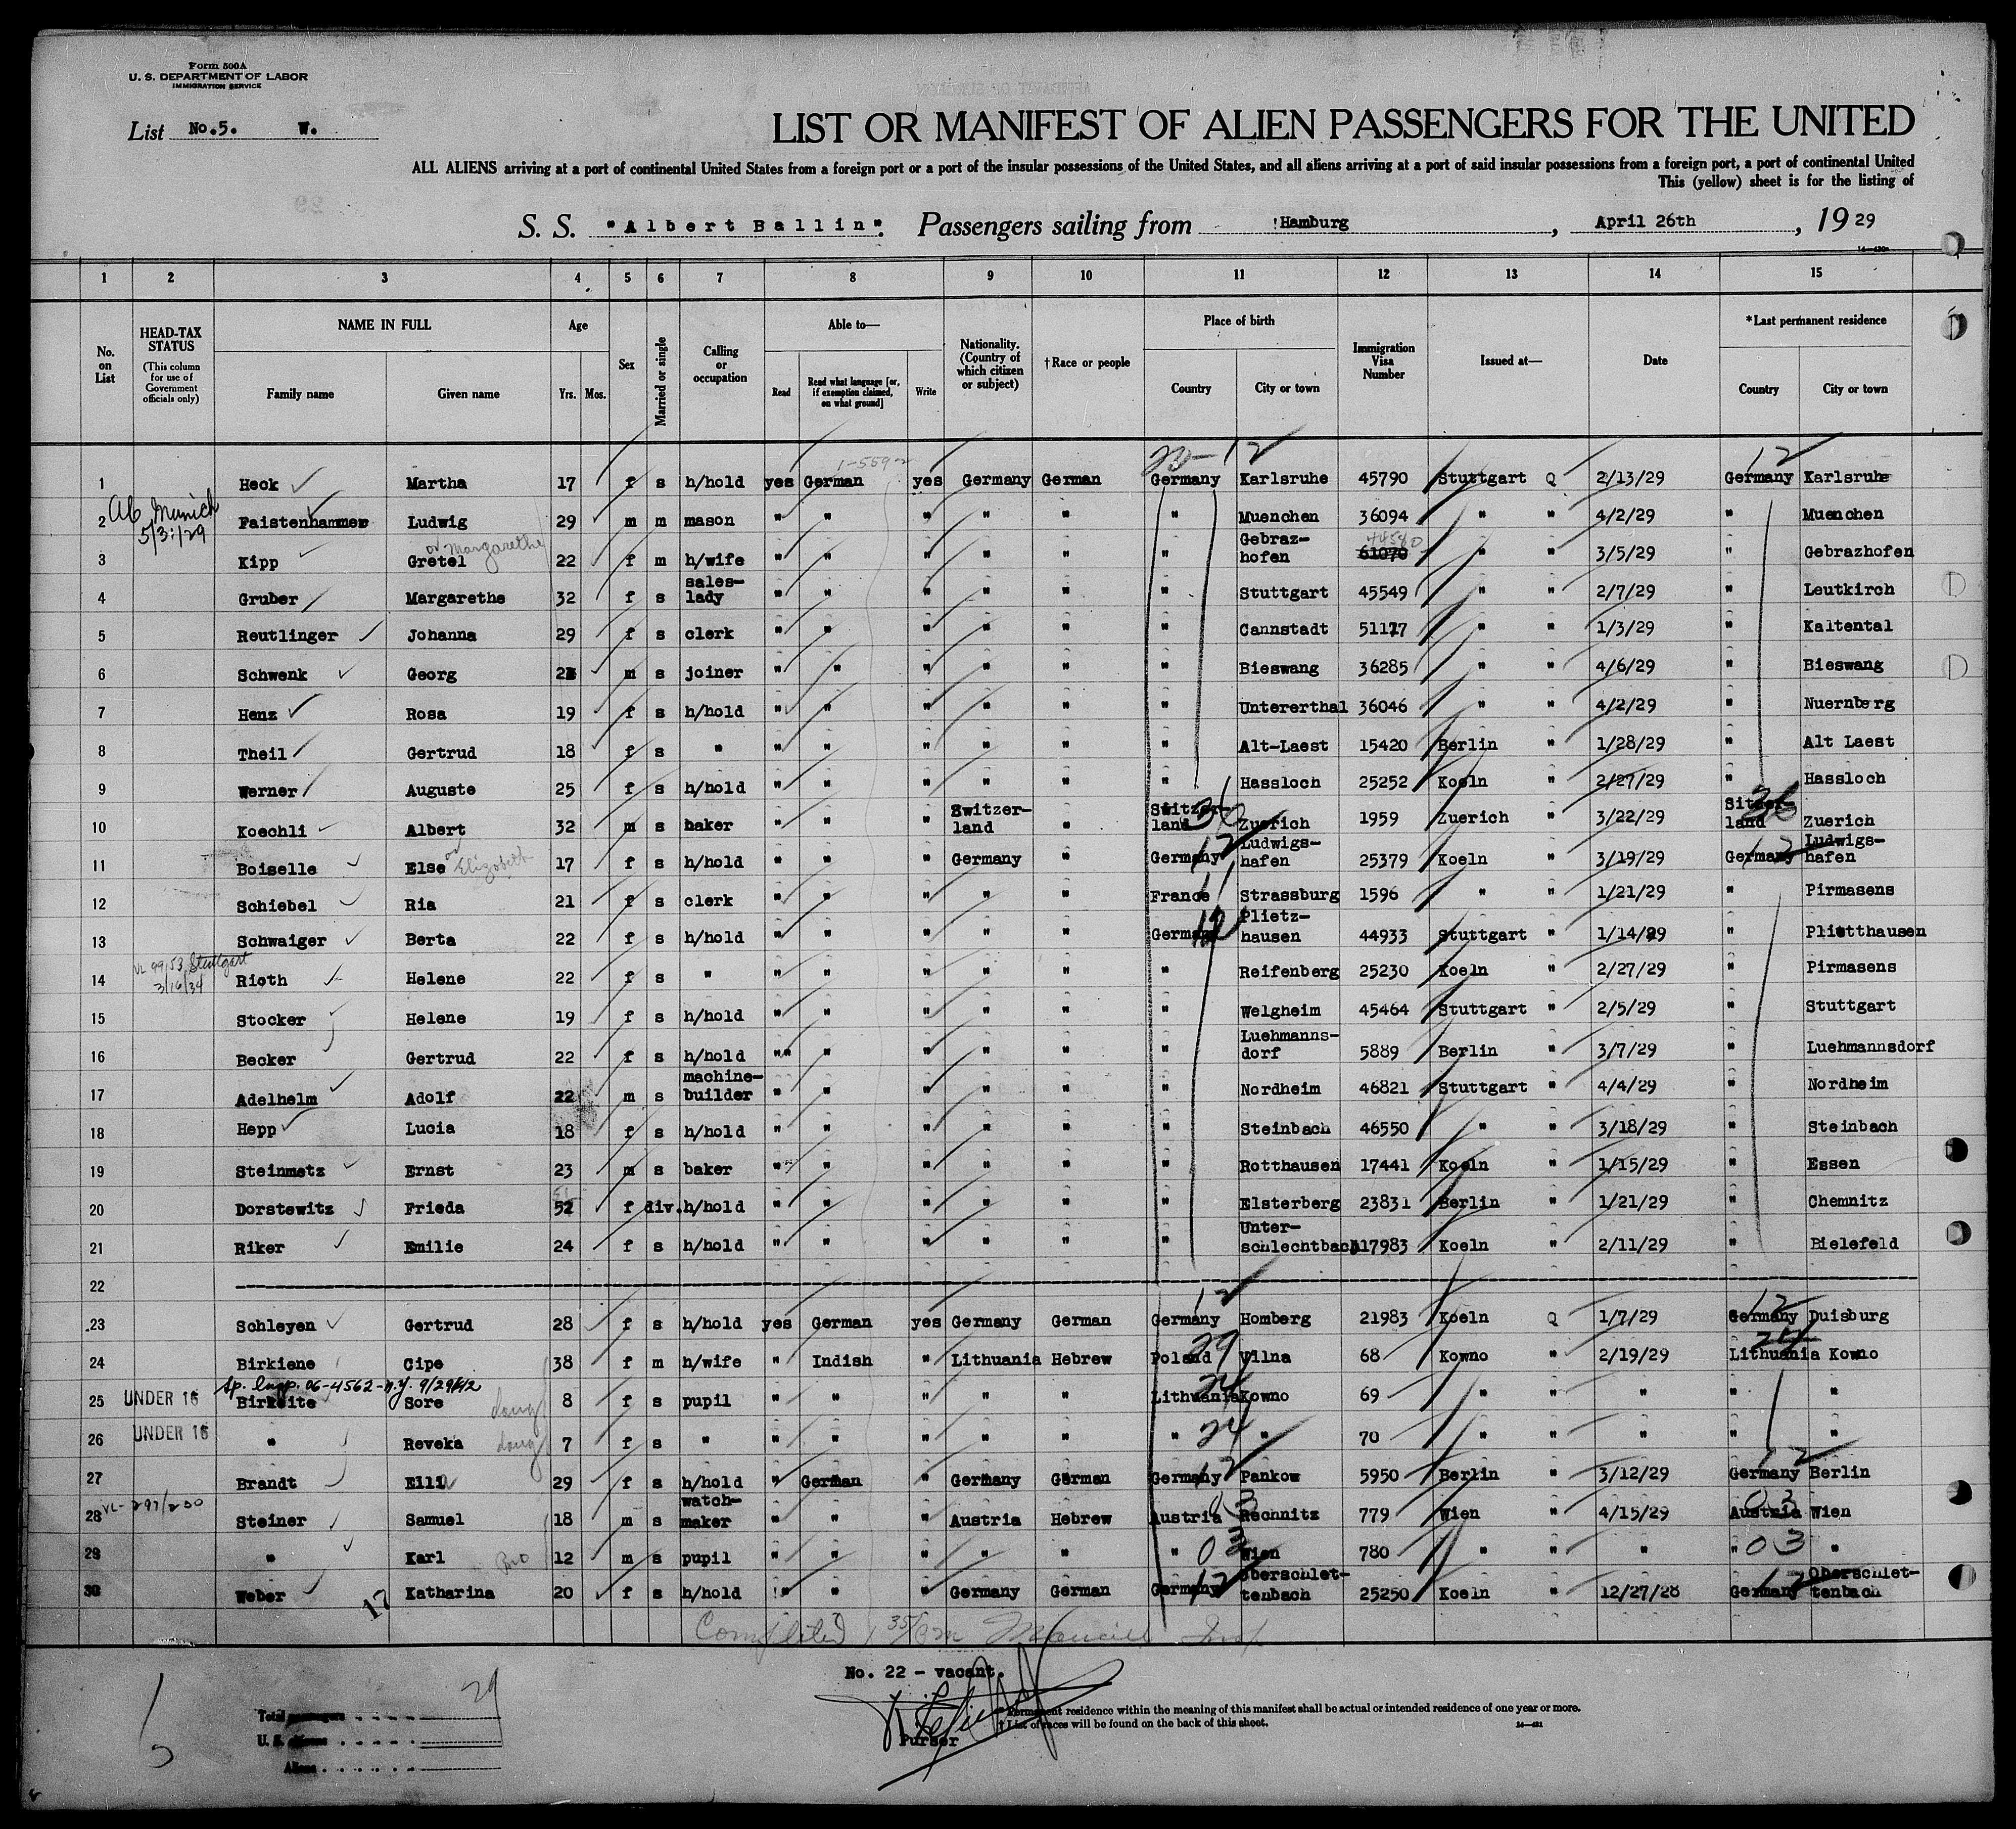 Form 500A
U. S. DEPARTMENT OF LABOR
IMMIGRATION SERVICE
List No.5. W.
LIST OR MANIFEST OF ALIEN PASSENGERS FOR THE UNITED
ALL ALIENS arriving at a port of continental United States from a foreign port or a port of the insular possessions of the United States, and all aliens arriving at a port of said insular possessions from a foreign port, a port of continental United
This (yellow) sheet is for the listing of
S. S. "Albert Ballin". Passengers sailing from Hamburg, April 26th, 1929
1 2 3 4 5 6 7 8 9 10 11 12 13 14 15
No. on List
HEAD-TAX STATUS (This column for use of Government officials only)
NAME IN FULL Family name Given name
Age Yrs. Mos.
Sex
Married or single
Calling or occupation
Able to— Read Read what language [or, if exemption claimed, on what ground] Write
Nationality. (Country of which citizen or subject)
†Race or people
Place of birth Country City or town
Immigration Visa Number
Issued at—
Date
*Last permanent residence Country City or town
20- 12 12
1-559
1 Heck Martha 17 f s h/hold yes German yes Germany German Germany Karlsruhe 45790 Stuttgart Q 2/13/29 Germany Karlsruhe
Munich 5/3/29
2 Faistenhammer Ludwig 29 m m mason " " " " " " Muenchen 36094 " " 4/2/29 " Muenchen
or Margarethe 44580
3 Kipp Gretel 22 f m h/wife " " " " " " Gebraz-hofen 61070 " " 3/5/29 " Gebrazhofen
4 Gruber Margarethe 32 f s sales-lady " " " " " " Stuttgart 45549 " " 2/7/29 " Leutkirch
5 Reutlinger Johanna 29 f s clerk " " " " " " Cannstadt 51177 " " 1/3/29 " Kaltental
6 Schwenk Georg m s joiner " " " " " " Bieswang 36285 " " 4/6/29 " Bieswang
7 Henz Rosa 19 f s h/hold " " " " " " Untererthal 36046 " " 4/2/29 " Nuernberg
8 Theil Gertrud 18 f s " " " " " " " Alt-Laest 15420 Berlin " 1/28/29 " Alt Laest
9 Werner Auguste 25 f s h/hold " " " " " " Hassloch 25252 Koeln " 2/27/29 " Hassloch
10 Koechli Albert 32 m s baker " " " Switzer-land " Switzer-land Zuerich 1959 Zuerich " 3/22/29 Sitzer-land Zuerich
or Elizabeth
11 Boiselle Else 17 f s h/hold " " " Germany " Germany Ludwigs-hafen 25379 Koeln " 3/19/29 Germany Ludwigs-hafen
12 Schiebel Ria 21 f s clerk " " " " " France Strassburg 1596 " " 1/21/29 " Pirmasens
13 Schwaiger Berta 22 f s h/hold " " " " " Germany Plietz-hausen 44933 Stuttgart " 1/14/29 " Plietthausen
Stuttgart 3/16/34
14 Rioth Helene 22 f s " " " " " " " Reifenberg 25230 Koeln " 2/27/29 " Pirmasens
15 Stocker Helene 19 f s h/hold " " " " " " Welgheim 45464 Stuttgart " 2/5/29 " Stuttgart
16 Becker Gertrud 22 f s h/hold " " " " " " Luehmanns-dorf 5889 Berlin " 3/7/29 " Luehmannsdorf
17 Adelhelm Adolf 22 m s machine-builder " " " " " " Nordheim 46821 Stuttgart " 4/4/29 " Nordheim
18 Hepp Lucia 18 f s h/hold " " " " " " Steinbach 46550 " " 3/18/29 " Steinbach
19 Steinmetz Ernst 23 m s baker " " " " " " Rotthausen 17441 Koeln " 1/15/29 " Essen
20 Dorstewitz Frieda 52 f div. h/hold " " " " " " Elsterberg 23831 Berlin " 1/21/29 " Chemnitz
21 Riker Emilie 24 f s h/hold " " " " " " Unter-schlechtbach 17983 Koeln " 2/11/29 " Bielefeld
22
23 Schleyen Gertrud 28 f s h/hold yes German yes Germany German Germany Homberg 21983 Koeln Q 1/7/29 Germany Duisburg
24 Birkiene Cipe 38 f m h/wife " Indish " Lithuania Hebrew Poland Vilna 68 Kowno " 2/19/29 Lithuania Kowno
Sp. Insp. 06-4562-N.Y. 9/29/42
25 UNDER 16 Birkeite Sore daug 8 f s pupil " " " " " Lithuania Kowno 69 " " " " "
26 UNDER 16 " Reveka daug 7 f s " " " " " " " " 70 " " " " "
27 Brandt Elli 29 f s h/hold " German " Germany German Germany Pankow 5950 Berlin " 3/12/29 Germany Berlin
28 Steiner Samuel 18 m s watch-maker " " " Austria Hebrew Austria Rechnitz 779 Wien " 4/15/29 Austria Wien
29 " Karl Bro 12 m s pupil " " " " " " Wien 780 " " " " "
30 Weber Katharina 20 f s h/hold " " " Germany German Germany Oberschlet-tenbach 25250 Koeln " 12/27/28 Germany Oberschlet-tenbach
17
Completed
No. 22 - vacant.
29
Total passengers
U. S. citizens
Aliens
Purser
* Permanent residence within the meaning of this manifest shall be actual or intended residence of one year or more.
† List of races will be found on the back of this sheet.